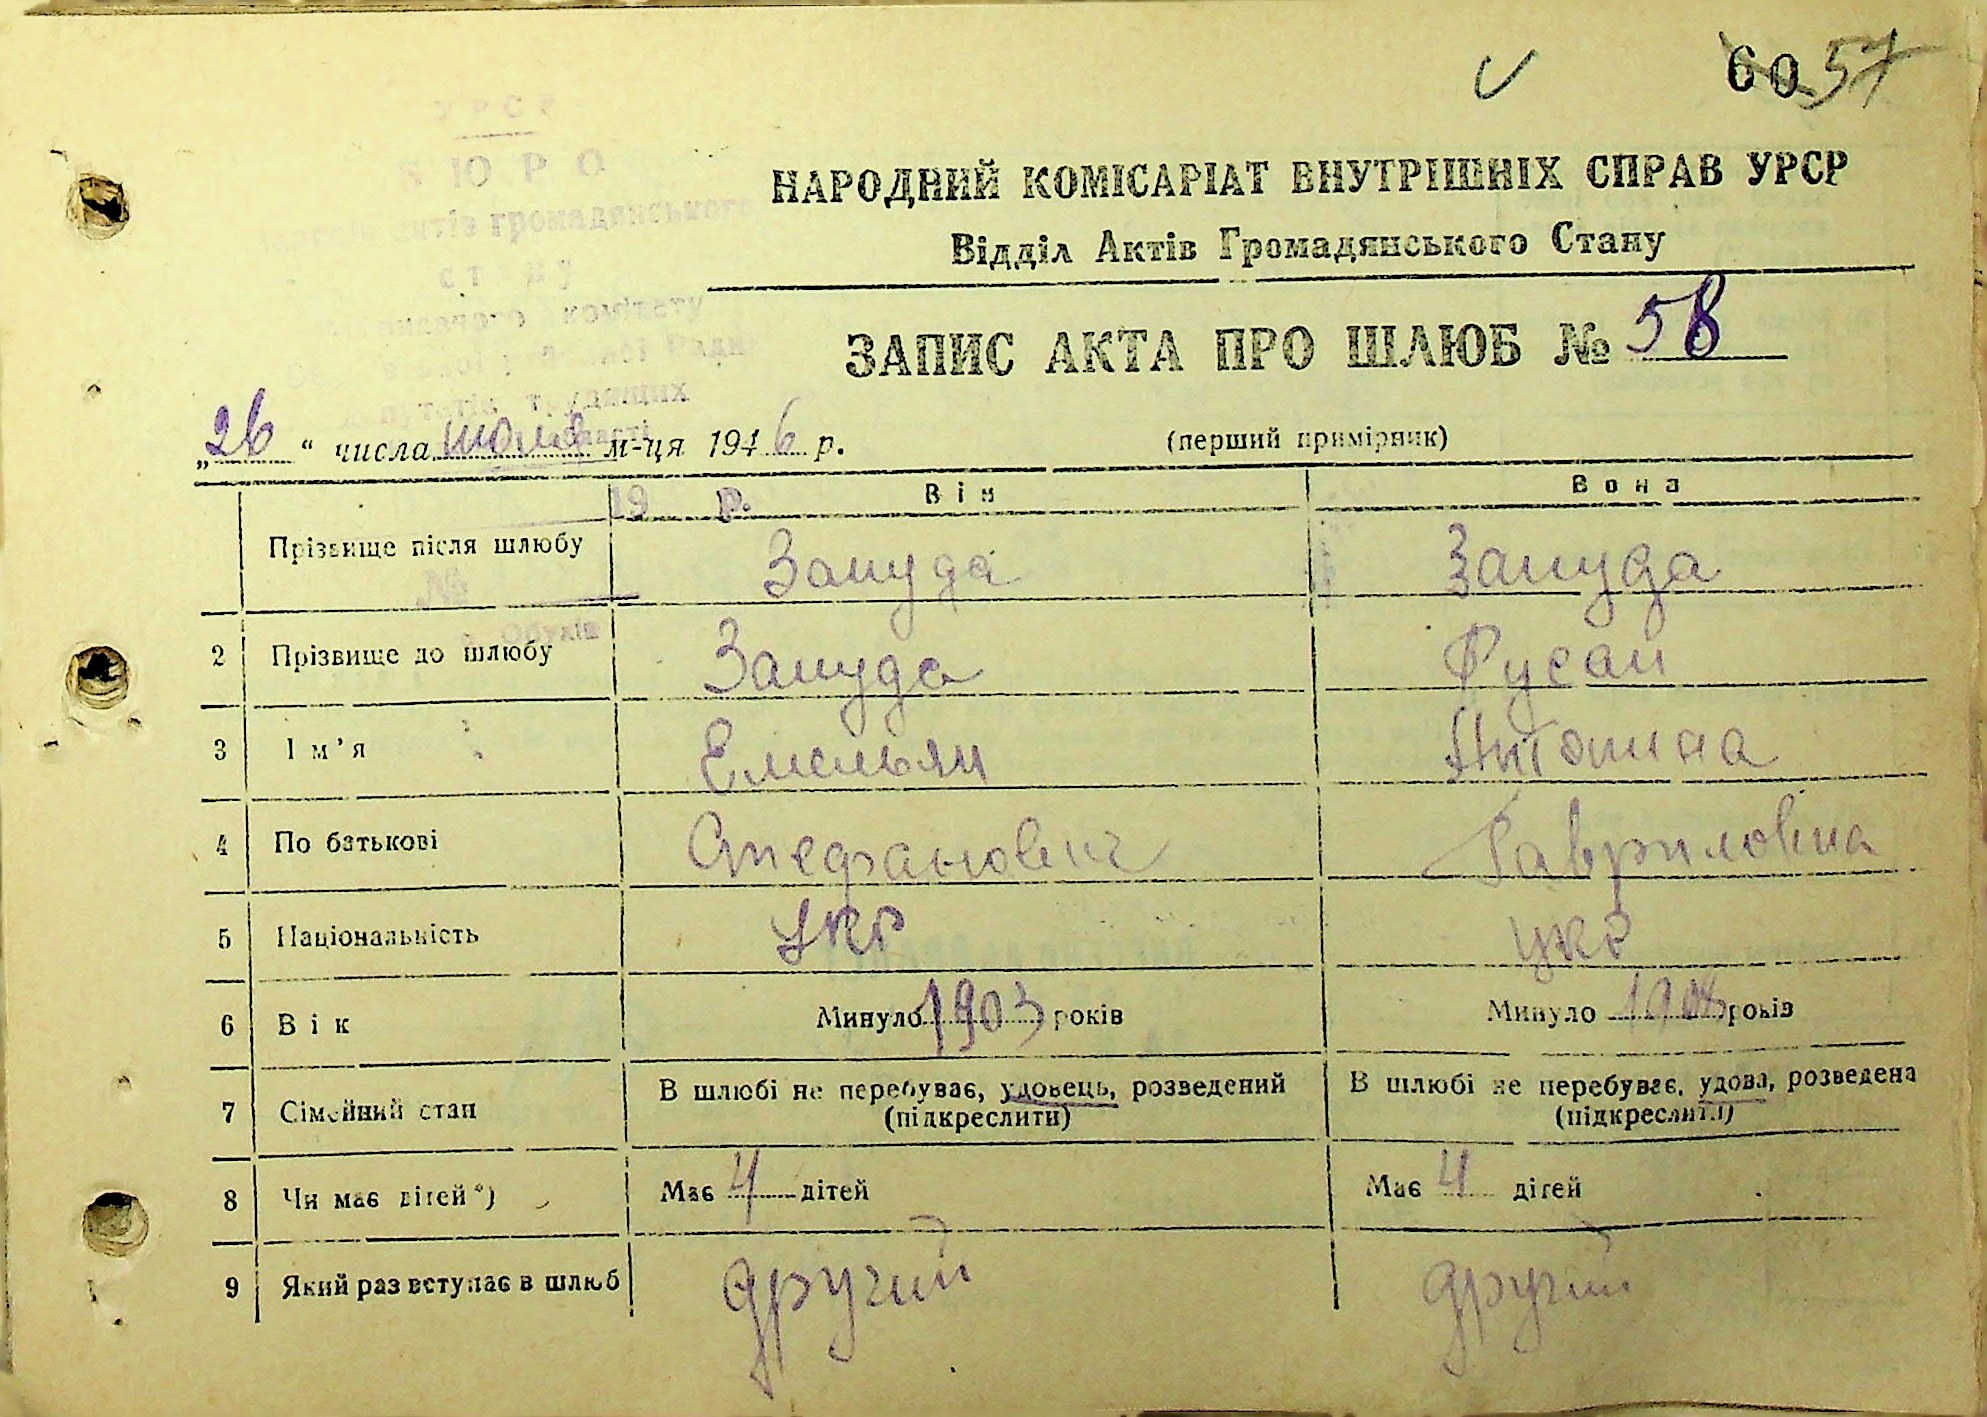 60 57
НАРОДНИЙ КОМІСАРІАТ ВНУТРІШНІХ СПРАВ УРСР
Відділ Актів Громадянського Стану
ЗАПИС АКТА ПРО ШЛЮБ № 58
„26“ числа июля м-ця 1946 р. (перший примірник)
Він Вона
Прізвище після шлюбу Зануда Зануда
2 Прізвище до шлюбу Зануда Русан
3 Ім’я Емельян Антонина
4 По батькові Стефанович Гавриловна
5 Національність укр укр
6 Вік Минуло 1903 років Минуло 1908 років
7 Сімейний стан В шлюбі не перебуває, удовець, розведений (підкреслити) В шлюбі не перебуває, удова, розведена (підкреслити)
8 Чи має дітей*) Має 4 дітей Має 4 дітей
9 Який раз вступає в шлюб другий другий
УРСР
БЮРО
актів громадянського
стану
комітету
Ради
трудящих
області
19 р.
№